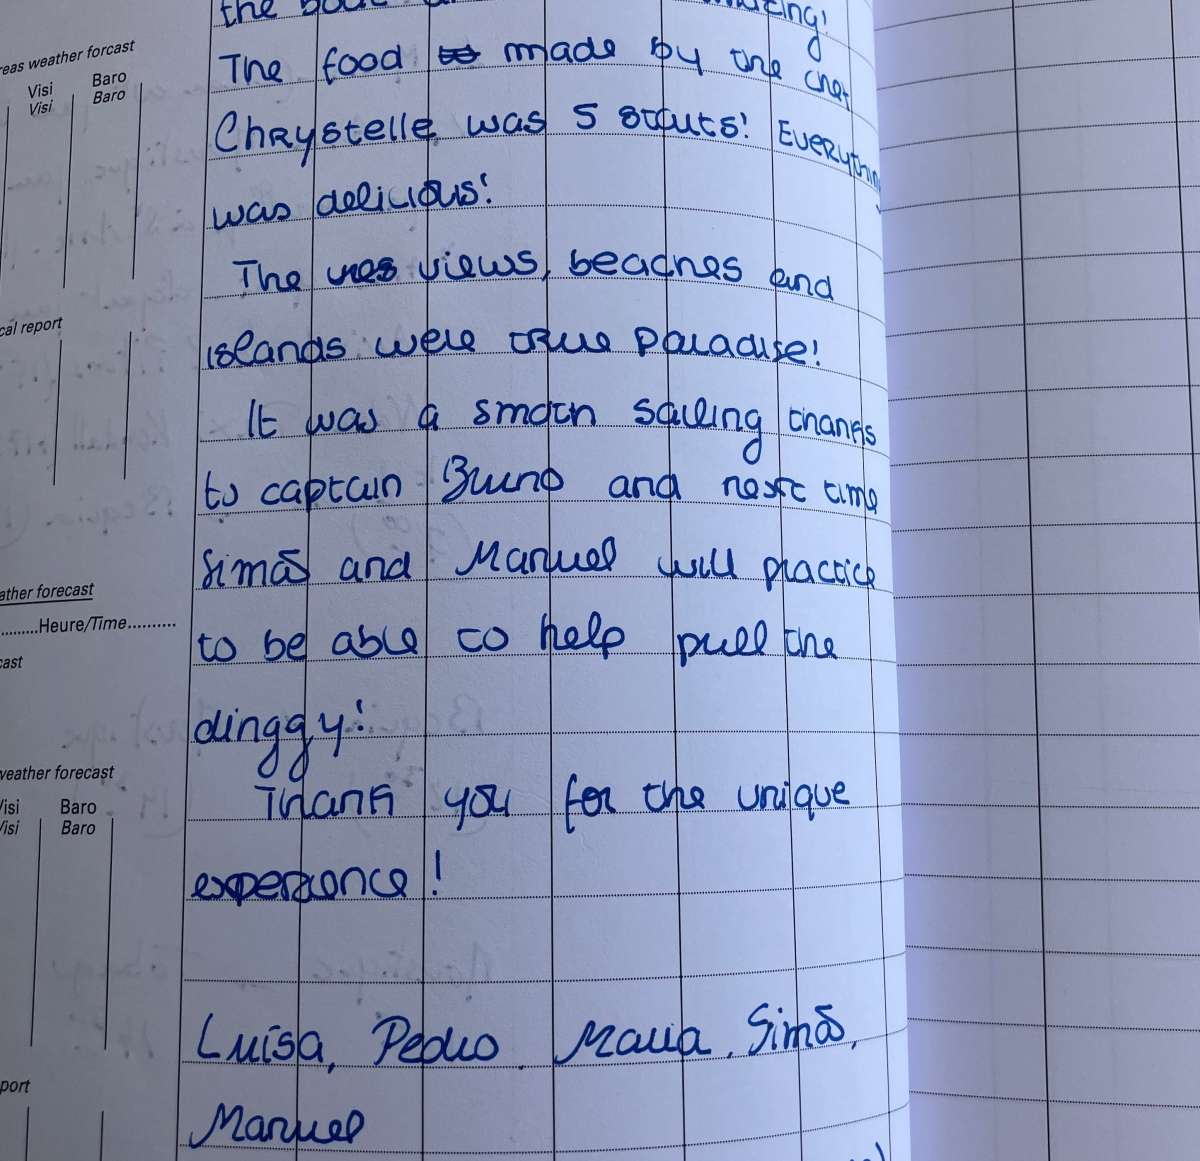 the
The food made by the chef
Chrystelle was 5 stars! Everything
was delicious!
The views, beaches and
islands were true paradise!
It was a smoth sailing thanks
to captain Bruno and next time
Simão and Manuel will practice
to be able to help pull the
dinggy!
Thank you for the unique
experience!
Luísa, Pedro, Maria, Simão,
Manuel
reas weather forcast
Visi Baro
Visi Baro
cal report
ather forecast
.........Heure/Time..........
cast
weather forecast
Visi Baro
Visi Baro
port